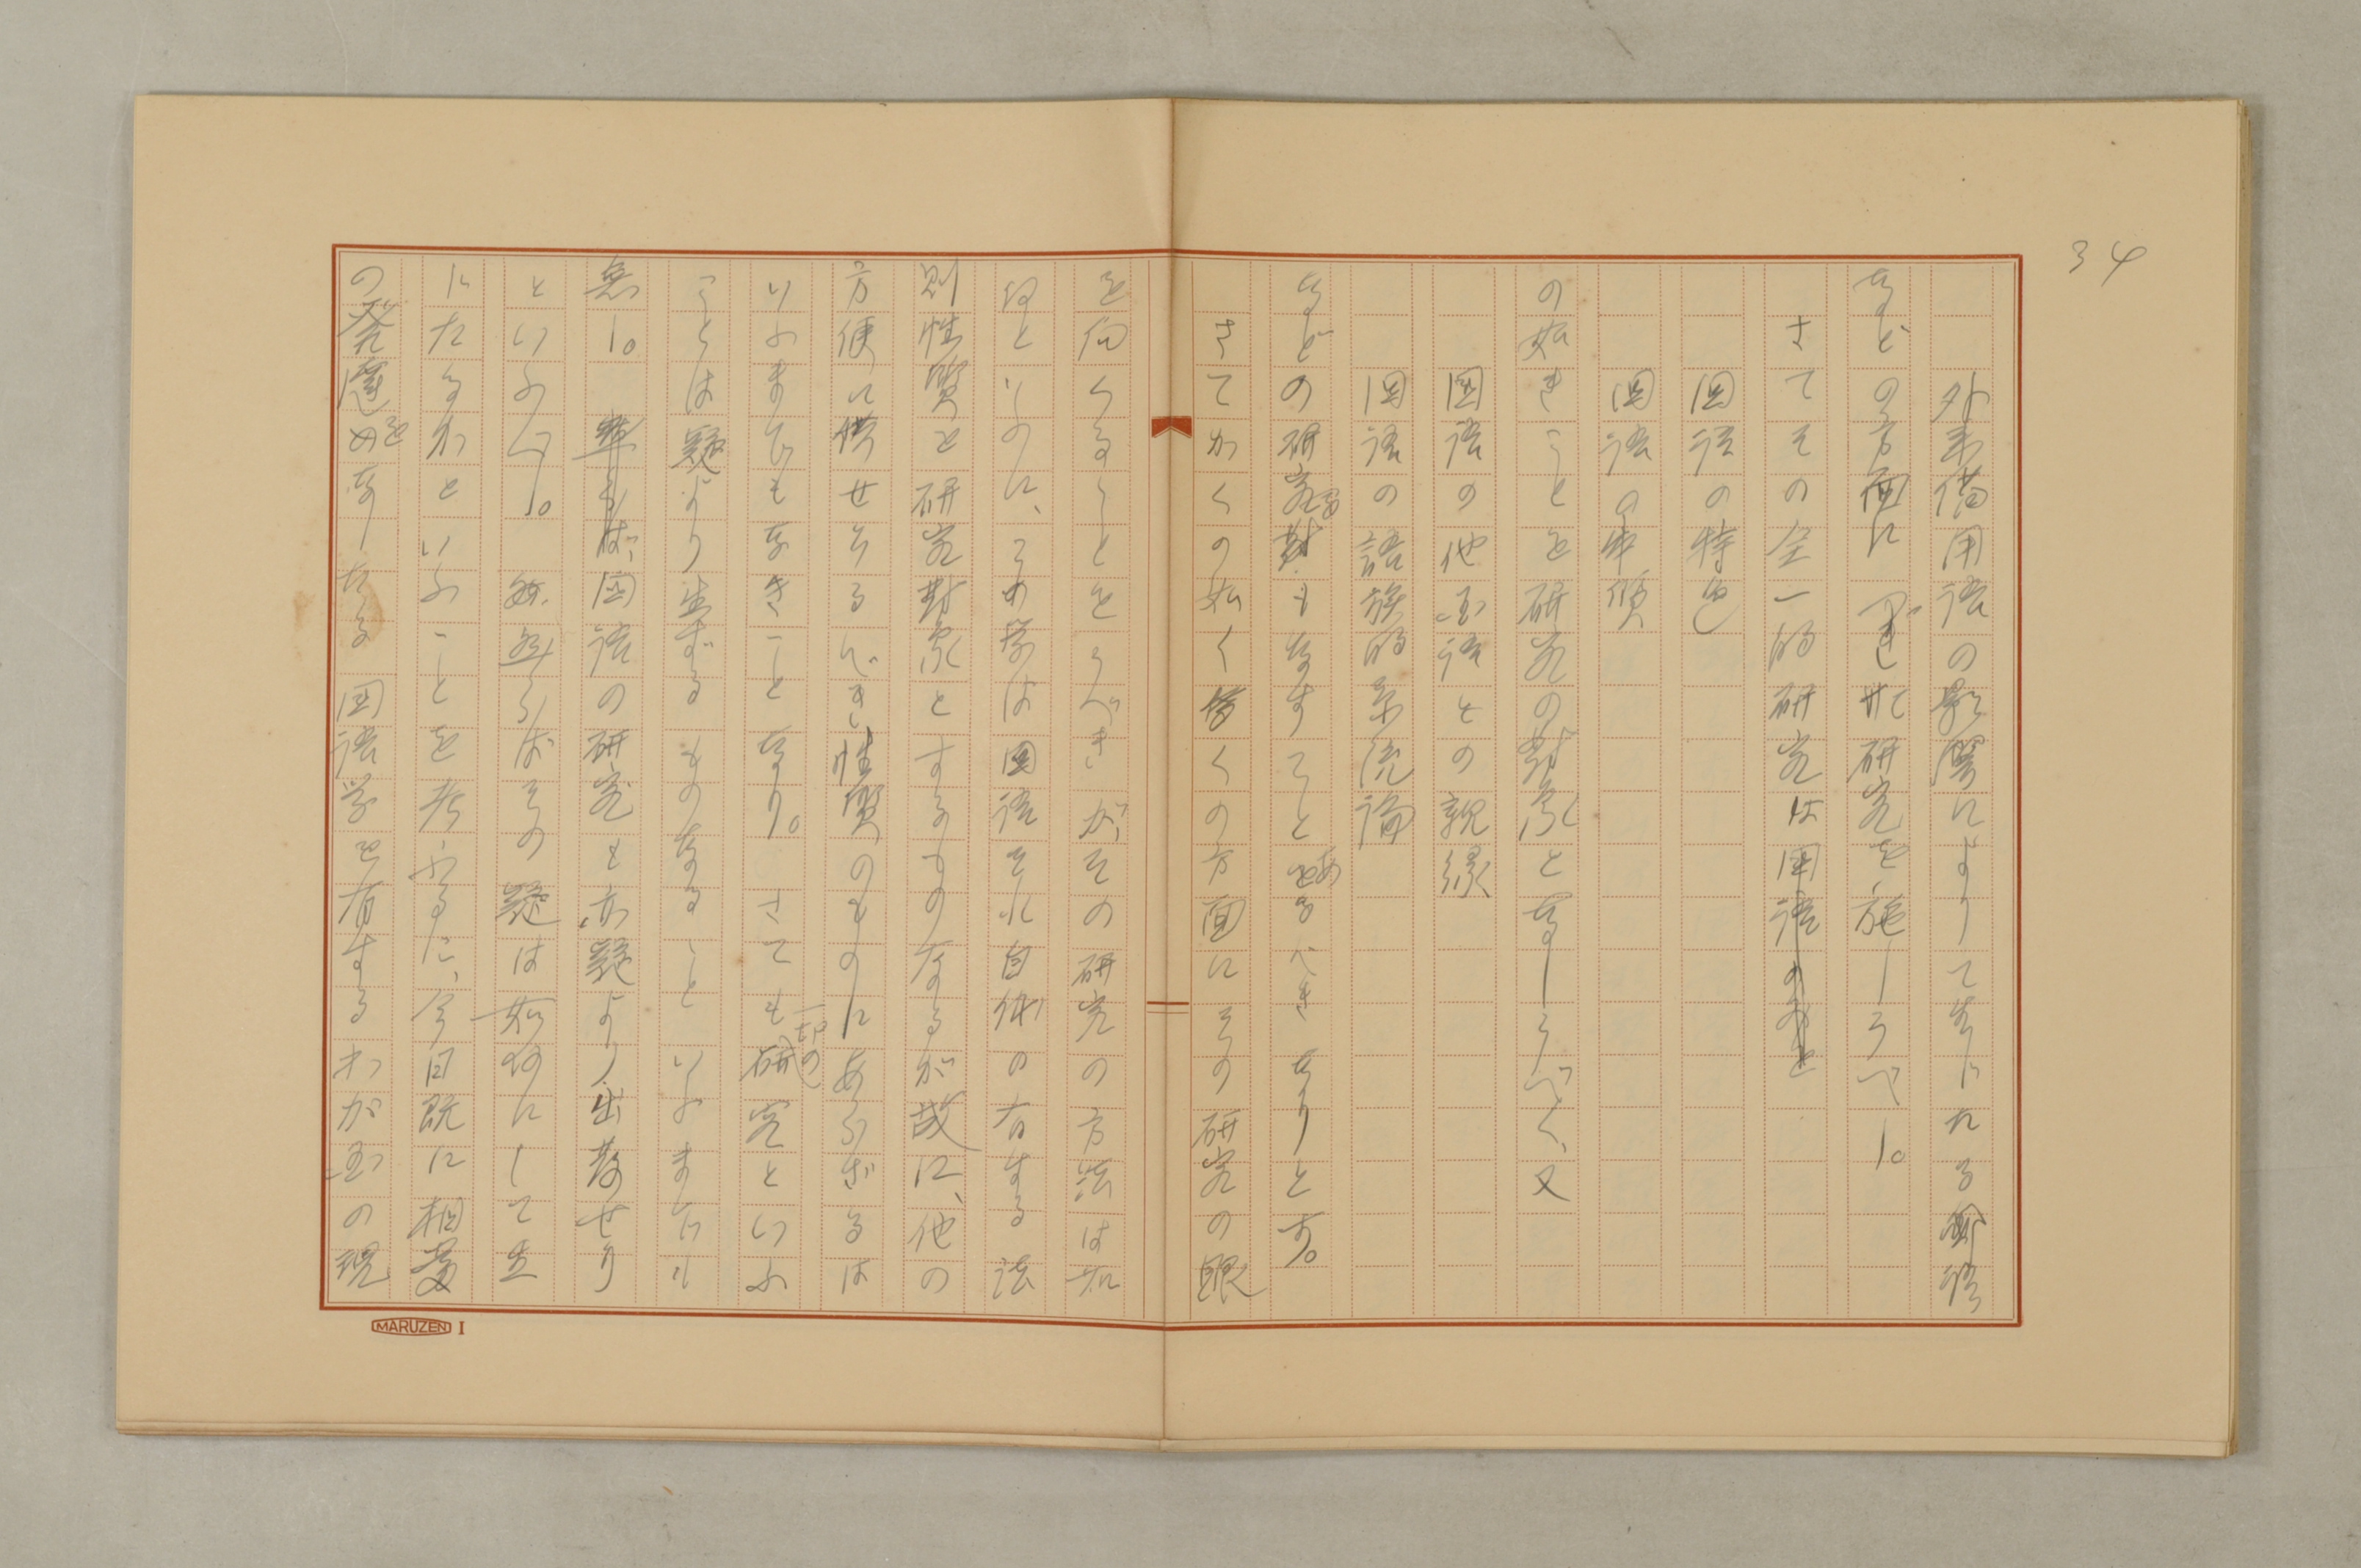 34
外来借用語の影響によりて生じたる新語
などの方面に 研究を施しうべし。
さてその全一的研究は国語
国語の特色
国語の本質
の如きことを研究の対象と為しうべく、又
国語の他国語との親縁
国語の語族的系流論
などの研究もなすことあるべきなりとす。
さてかくの如く多くの方面にその研究の眼
を向くることをうべきが、その研究の方法は如
何といふに、この学は国語それ自体の有する法
則性質を研究対象とするものなるが故に、他の
方便に供せらるべき性質のものにあらざるは
いふまでもなきことなり。さても一切の研究といふ
ことは疑より生ずるものなることいふまでも
無し。然らば、国語の研究も亦疑より出発せり
といふべし。然らばその疑は如何にして生
じたるかといふことを考ふるに、今日既に相当
の発達をなしたる国語学を有するわが国の現
MARUZEN I